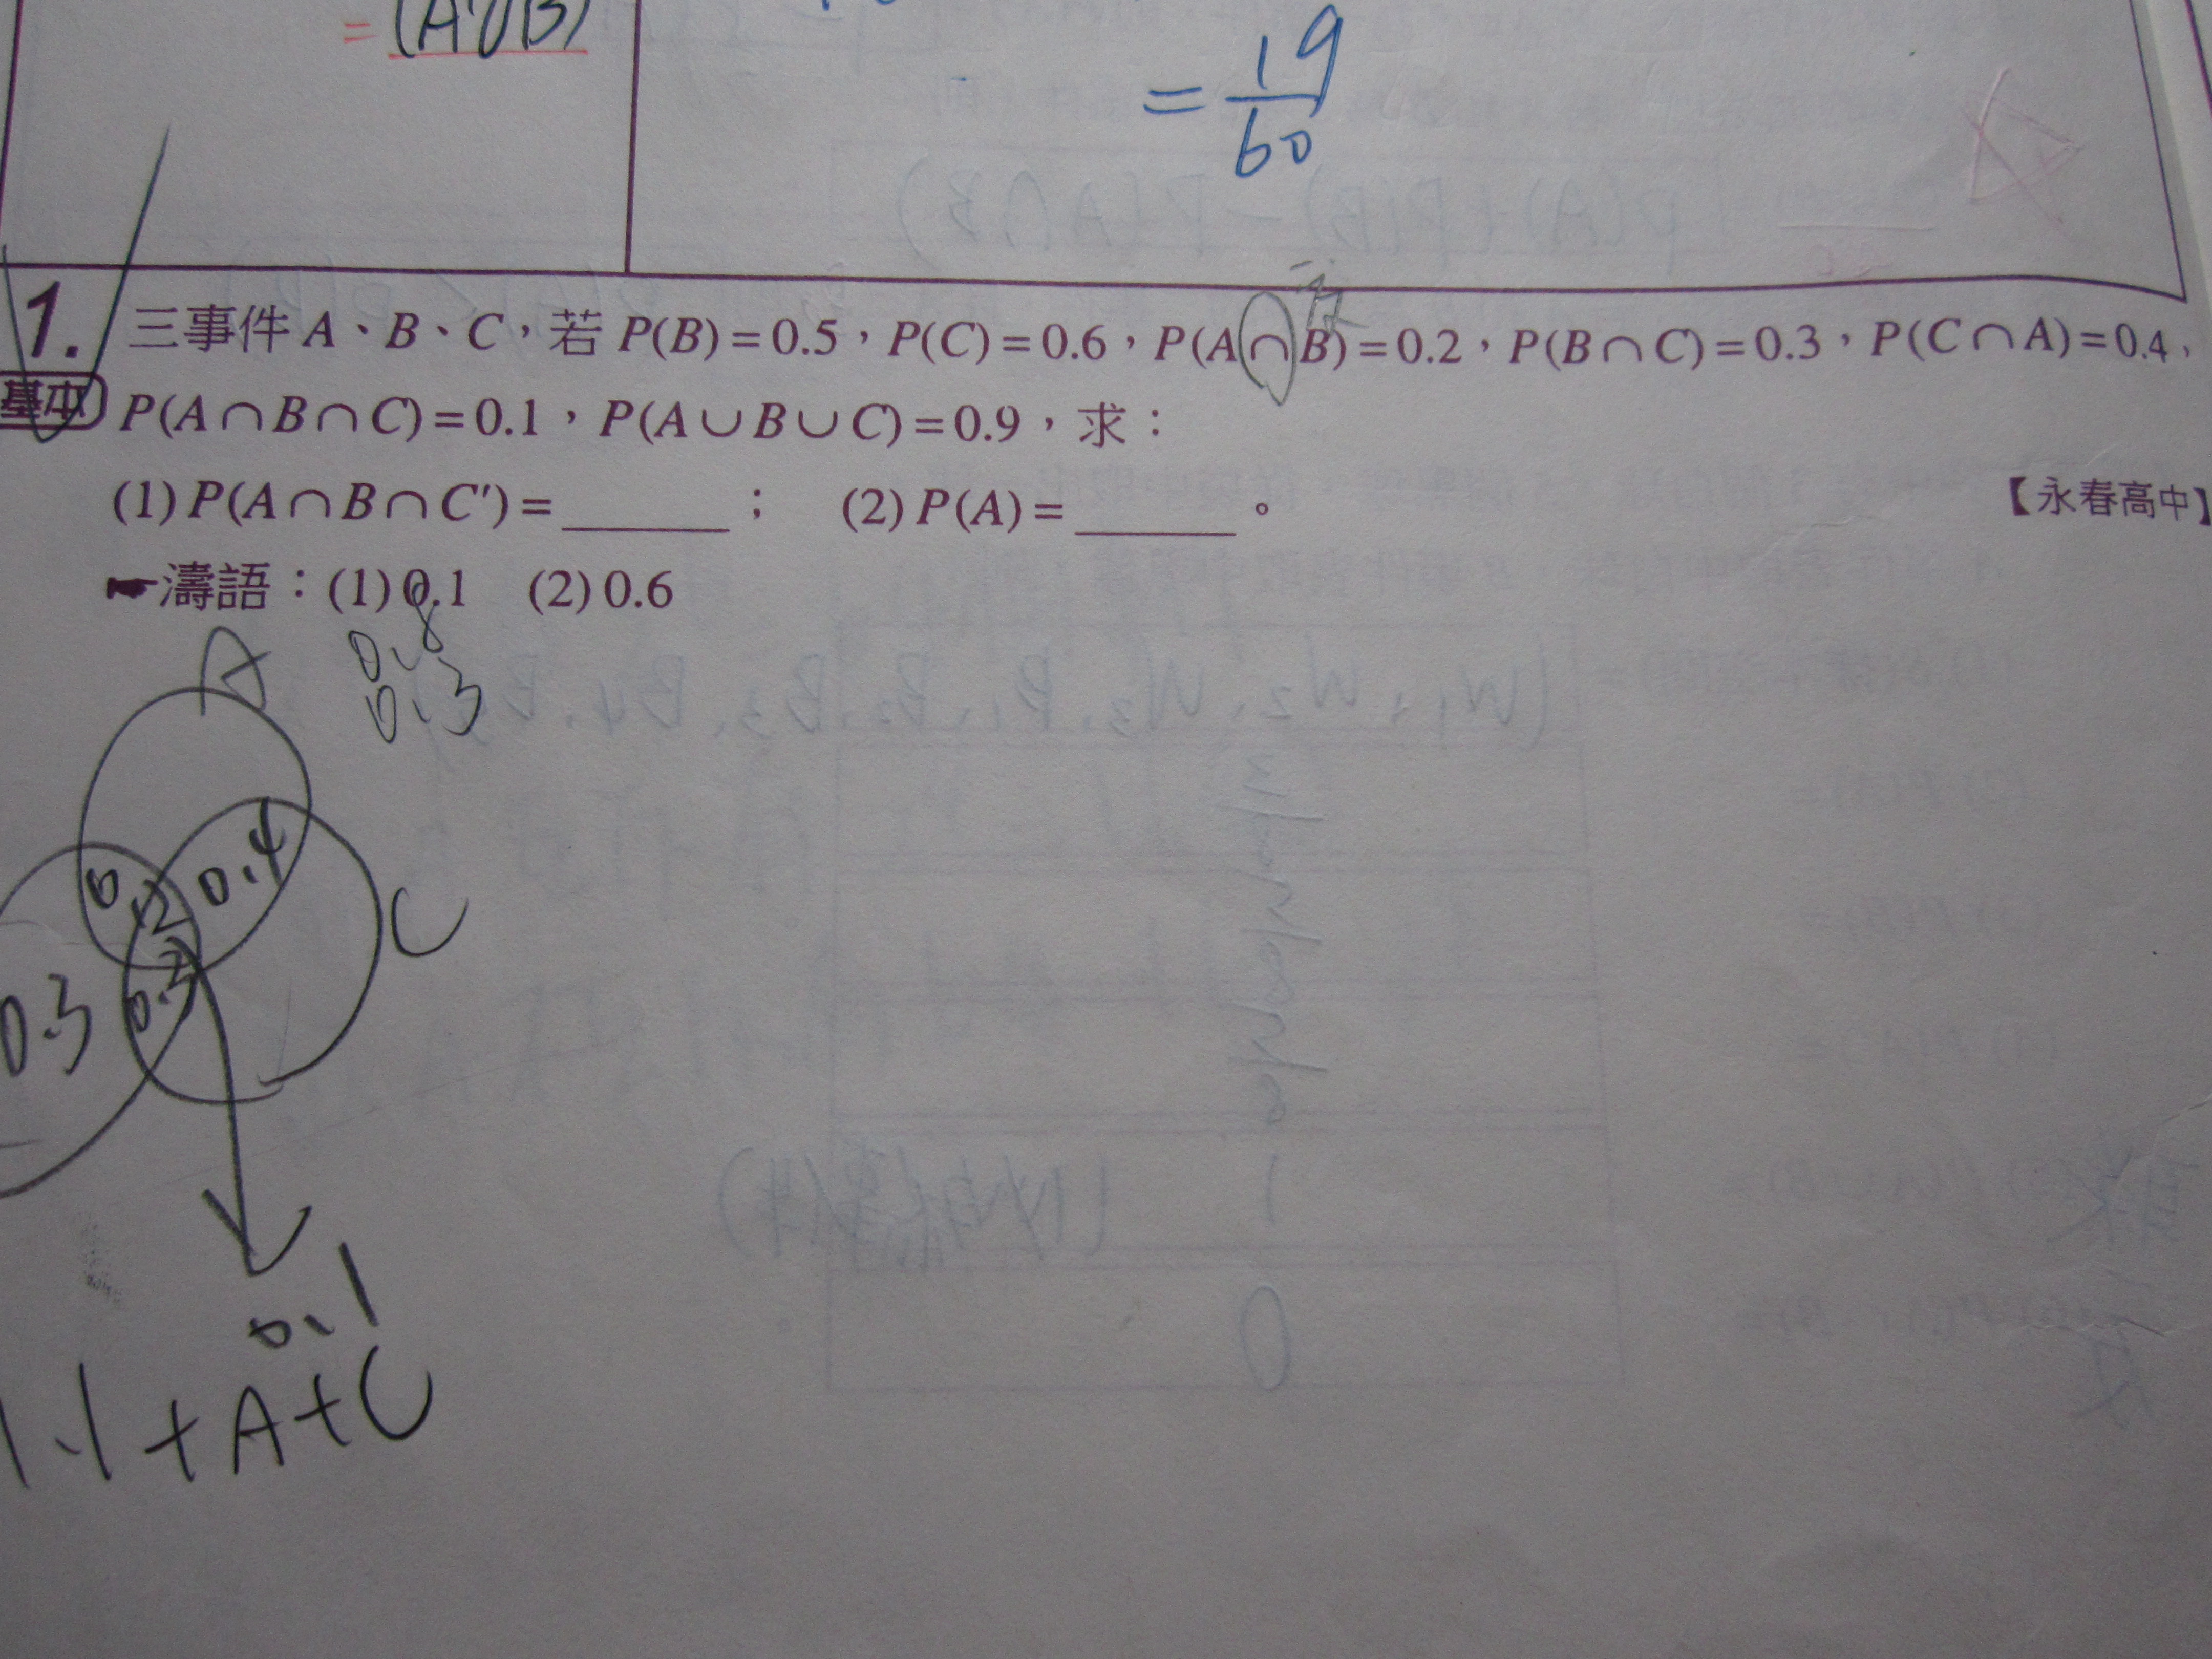 = (A'∪B)
= 19/60
1. 三事件 A、B、C，若 P(B)=0.5，P(C)=0.6，P(A∩B)=0.2，P(B∩C)=0.3，P(C∩A)=0.4，
基本 P(A∩B∩C)=0.1，P(A∪B∪C)=0.9，求：
(1) P(A∩B∩C')=______； (2) P(A)=______。 【永春高中】
☛濤語：(1) 0.1 (2) 0.6
A
0.8
0.3
0.4
0.2
C
0.3
0.3
0.1
1.1+A+C